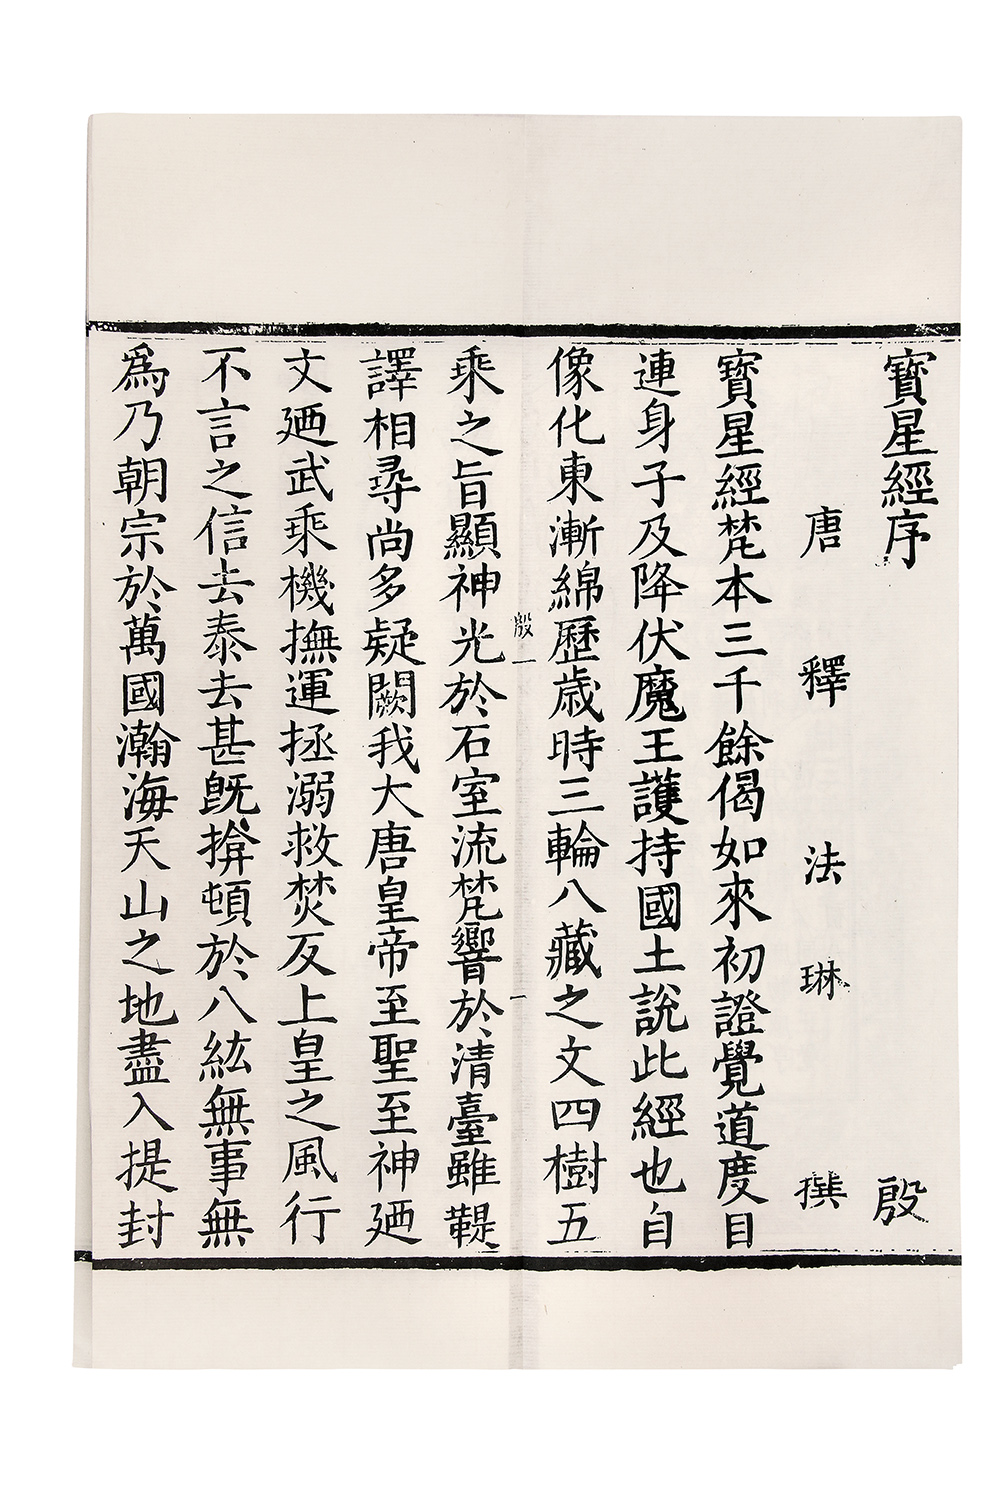 寶星經序　殷
唐釋法琳撰
寶星經梵本三千餘偈如來初證覺道度目
連身子及降伏魔王護持國土說此經也自
像化東漸綿歷歲時三輪八藏之文四樹五
乘之旨顯神光於石室流梵響於清臺雖鞮
殷一
一
譯相尋尚多疑闕我大唐皇帝至聖至神廼
文廼武乘機撫運拯溺救焚反上皇之風行
不言之信去泰去甚旣揜頓於八紘無事無
爲乃朝宗於萬國瀚海天山之地盡入提封